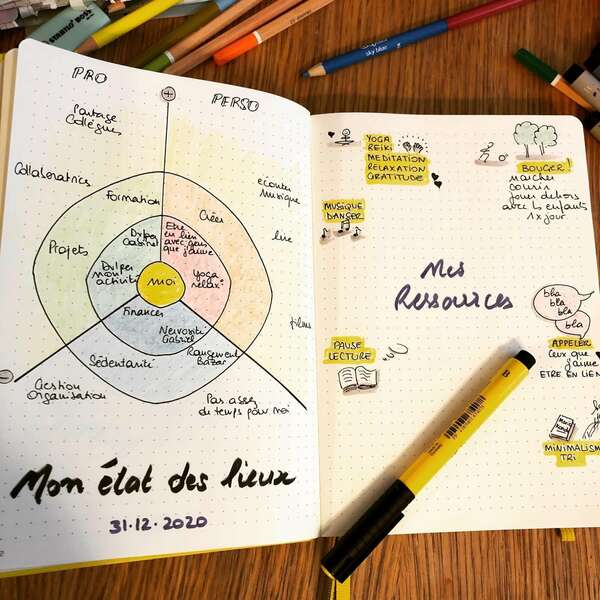 PRO
PERSO
+
Partage
Collègues
Collaboratrices
Formation
Projets
Cabinet
mon
activité
Créer
Etre
en lien
avec gens
que j'aime
écouter
musique
lire
films
Yoga
relax
MOI
Finances
Nervosité
Gabriel
Rangement
Bazar
Sédentarité
−
Gestion
Organisation
Pas assez
de temps pour moi
Mon état des lieux
31.12.2020
2
YOGA
REIKI
MEDITATION
RELAXATION
GRATITUDE
BOUGER!
marcher
courir
jouer dehors
avec les enfants
1x jour
MUSIQUE
DANSER
Mes
Ressources
bla
bla
bla
bla
APPELER
ceux que
j'aime
ETRE EN LIEN
PAUSE
LECTURE
Marie
Kondo
MINIMALISM
TRI
sky blue
B